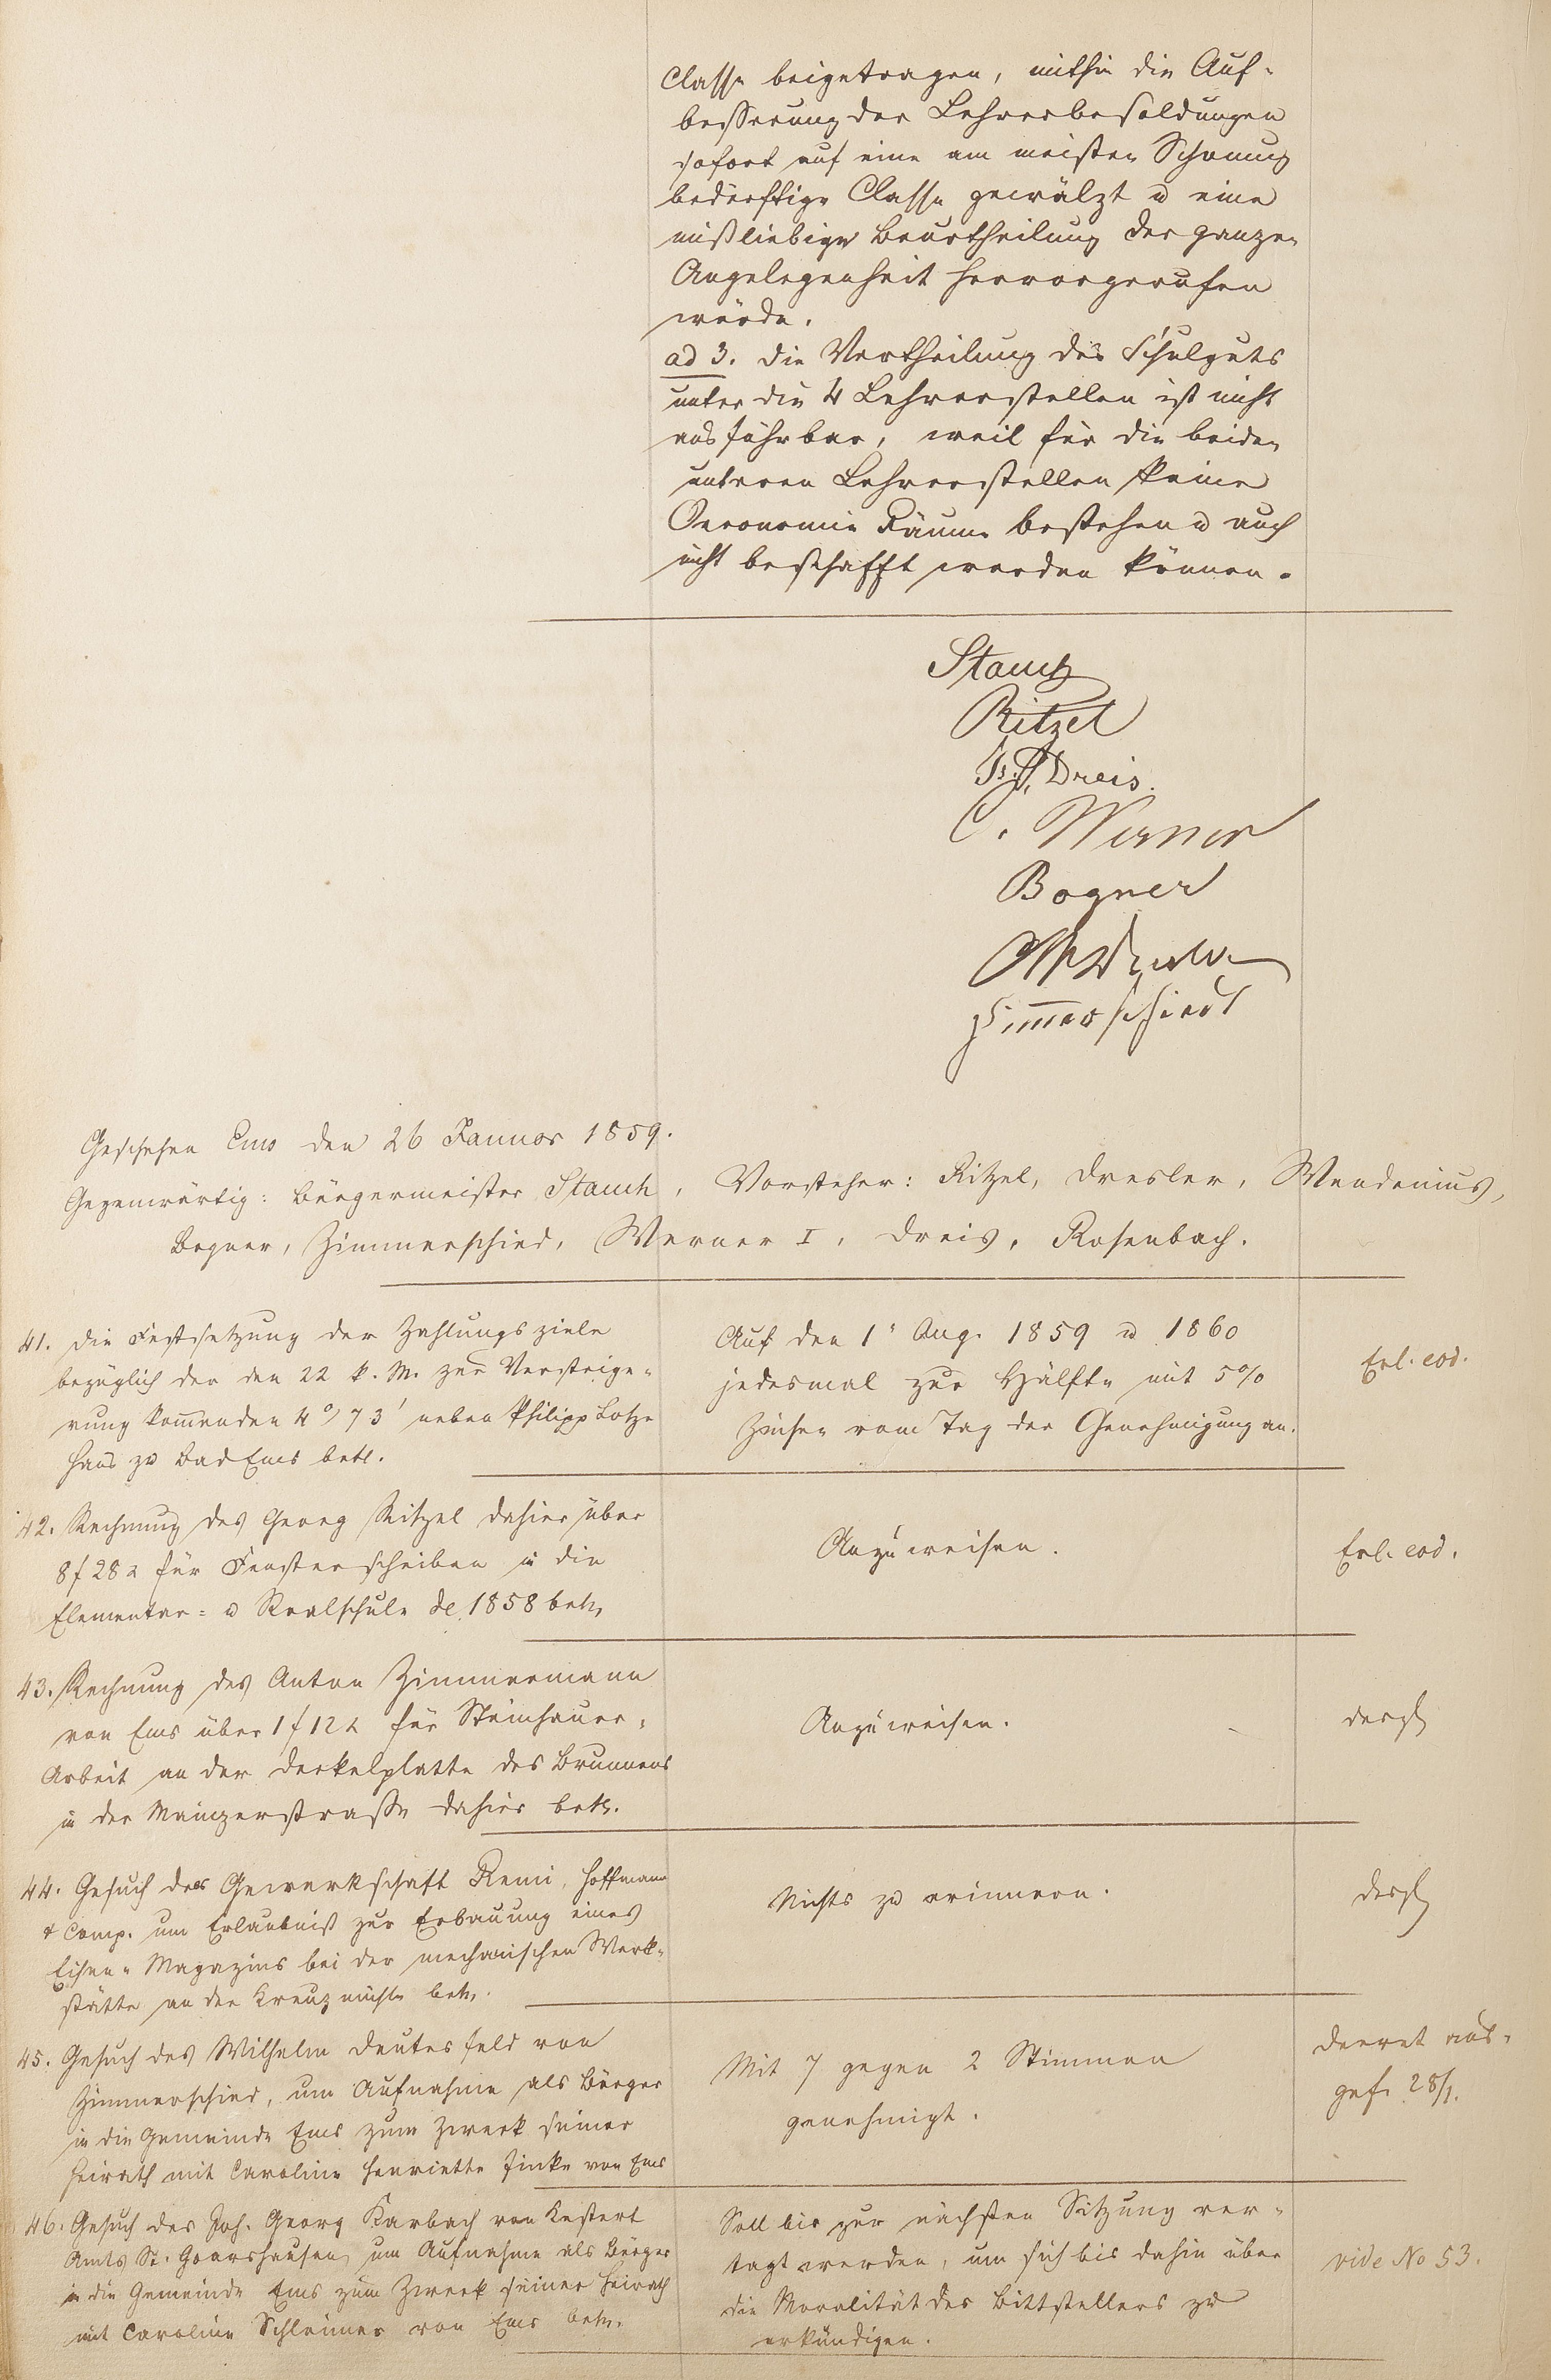 Classe beigetragen, mithin die Auf-
besserung der Lehrerbesoldungen
sofort auf eine am meisten Schonung
bedürftige Classe gewälzt u eine
mißliebige Beurtheilung der ganzen
Angelegenheit hervorgerufen
würde.
ad 3. die Vertheilung des Schulguts
unter die 4 Lehrerstellen ist nicht
ausführbar, weil für die beiden
unteren Lehrerstellen keine
Oeconomie Räume bestehen u auch
nicht beschafft werden können.
Stauch
Ritzel
Dreis.
C. Werner
Bogner
Zimmerschied
Geschehen Ems den 26 Januar 1859.
Gegenwärtig: Bürgermeister Stauch, Vorsteher: Ritzel, Dresler, Wendenius,
Bogner, Zimmerschied, Werner I, Dreis, Rosenbach.
41. die Festsetzung der Zahlungsziele
bezüglich der den 22 k. M. zur Versteige-
rung kommenden 4° 73' neben Philipp Lotze
Haus zu Bad Ems betr.
Auf den 1' Aug. 1859 u 1860
jedesmal zur Hälfte mit 5%
Zinsen vom Tag der Genehmigung an.
Erl. eod.
42. Rechnung des Georg Ritzel dahier über
8 f 28 x für Fensterscheiben in die
Elementar- u Realschule de 1858 betr.
Anzuweisen.
Erl. eod.
43. Rechnung des Anton Zimmermann
von Ems über 1 f 12 x für Steinhauer-
Arbeit an der Deckelplatte des Brunnens
in der Mainzerstraße dahier betr.
Anzuweisen.
dergl
44. Gesuch der Gewerkschaft Remi, Hoffmann
& Comp. um Erlaubniß zur Erbauung eines
Eisen-Magazins bei der mechanischen Werk-
stätte an der Kreuzmühle betr.
Nichts zu erinnern.
dergl
45. Gesuch des Wilhelm Deutesfeld von
Zimmerschied, um Aufnahme als Bürger
in die Gemeinde Ems zum Zweck seiner
Heirath mit Caroline Henriette Finke von Ems
Mit 7 gegen 2 Stimmen
genehmigt.
Decret aus-
gef. 28/1.
46. Gesuch des Joh. Georg Karbach von Kestert
Amts St. Goarshausen, um Aufnahme als Bürger
in die Gemeinde Ems zum Zweck seiner Heirath
mit Caroline Schleimer von Ems betr.
Soll bis zur nächsten Sitzung ver-
tagt werden, um sich bis dahin über
die Moralität des Bittstellers zu
erkündigen.
vide No 53.